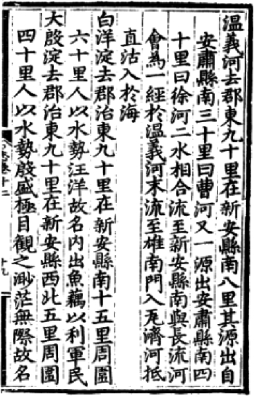 温義河去郡東九十里在新安縣南八里其源出自
安肅縣南三十里曰曹河又一源出安肅縣南四
十里曰徐河二水相合流至新安縣南與長流河
會為一經於温義河末流至雄南門入瓦濟河抵
直沽入於海
白洋淀去郡治東九十里在新安縣南十五里周圍
六十里人以水勢汪洋故名内出魚藕以利軍民
大殷淀去郡治東九十里在新安縣西北五里周圍
四十里人以水勢殷盛極目觀之渺茫無際故名